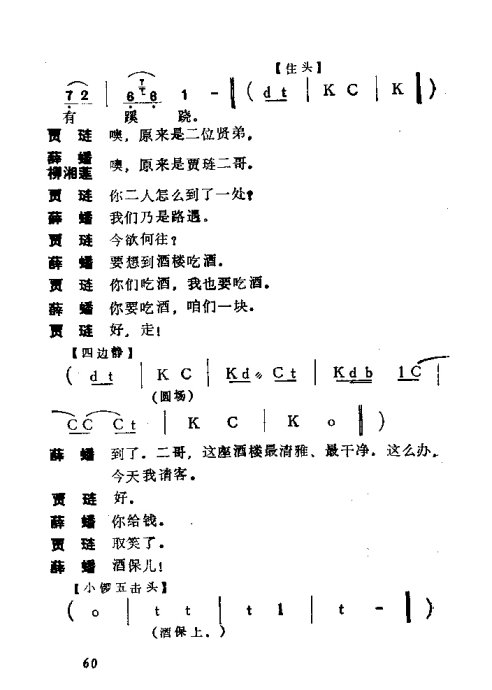 【住头】
7 2 | 6 6 1 - ‖ ( d t | K C | K ‖ )
有 蹊 跷。
贾 琏 噢，原来是二位贤弟。
薛 蟠
柳湘莲 噢，原来是贾琏二哥。
贾 琏 你二人怎么到了一处？
薛 蟠 我们乃是路遇。
贾 琏 今欲何往？
薛 蟠 要想到酒楼吃酒。
贾 琏 你们吃酒，我也要吃酒。
薛 蟠 你要吃酒，咱们一块。
贾 琏 好，走！
【四边静】
( d t | K C | K d C t | K d b 1 C |
(圆场)
C C C t | K C | K o ‖ )
薛 蟠 到了。二哥，这座酒楼最清雅、最干净。这么办，
今天我请客。
贾 琏 好。
薛 蟠 你给钱。
贾 琏 取笑了。
薛 蟠 酒保儿！
【小锣五击头】
( o | t t | t 1 | t - ‖ )
(酒保上。)
60